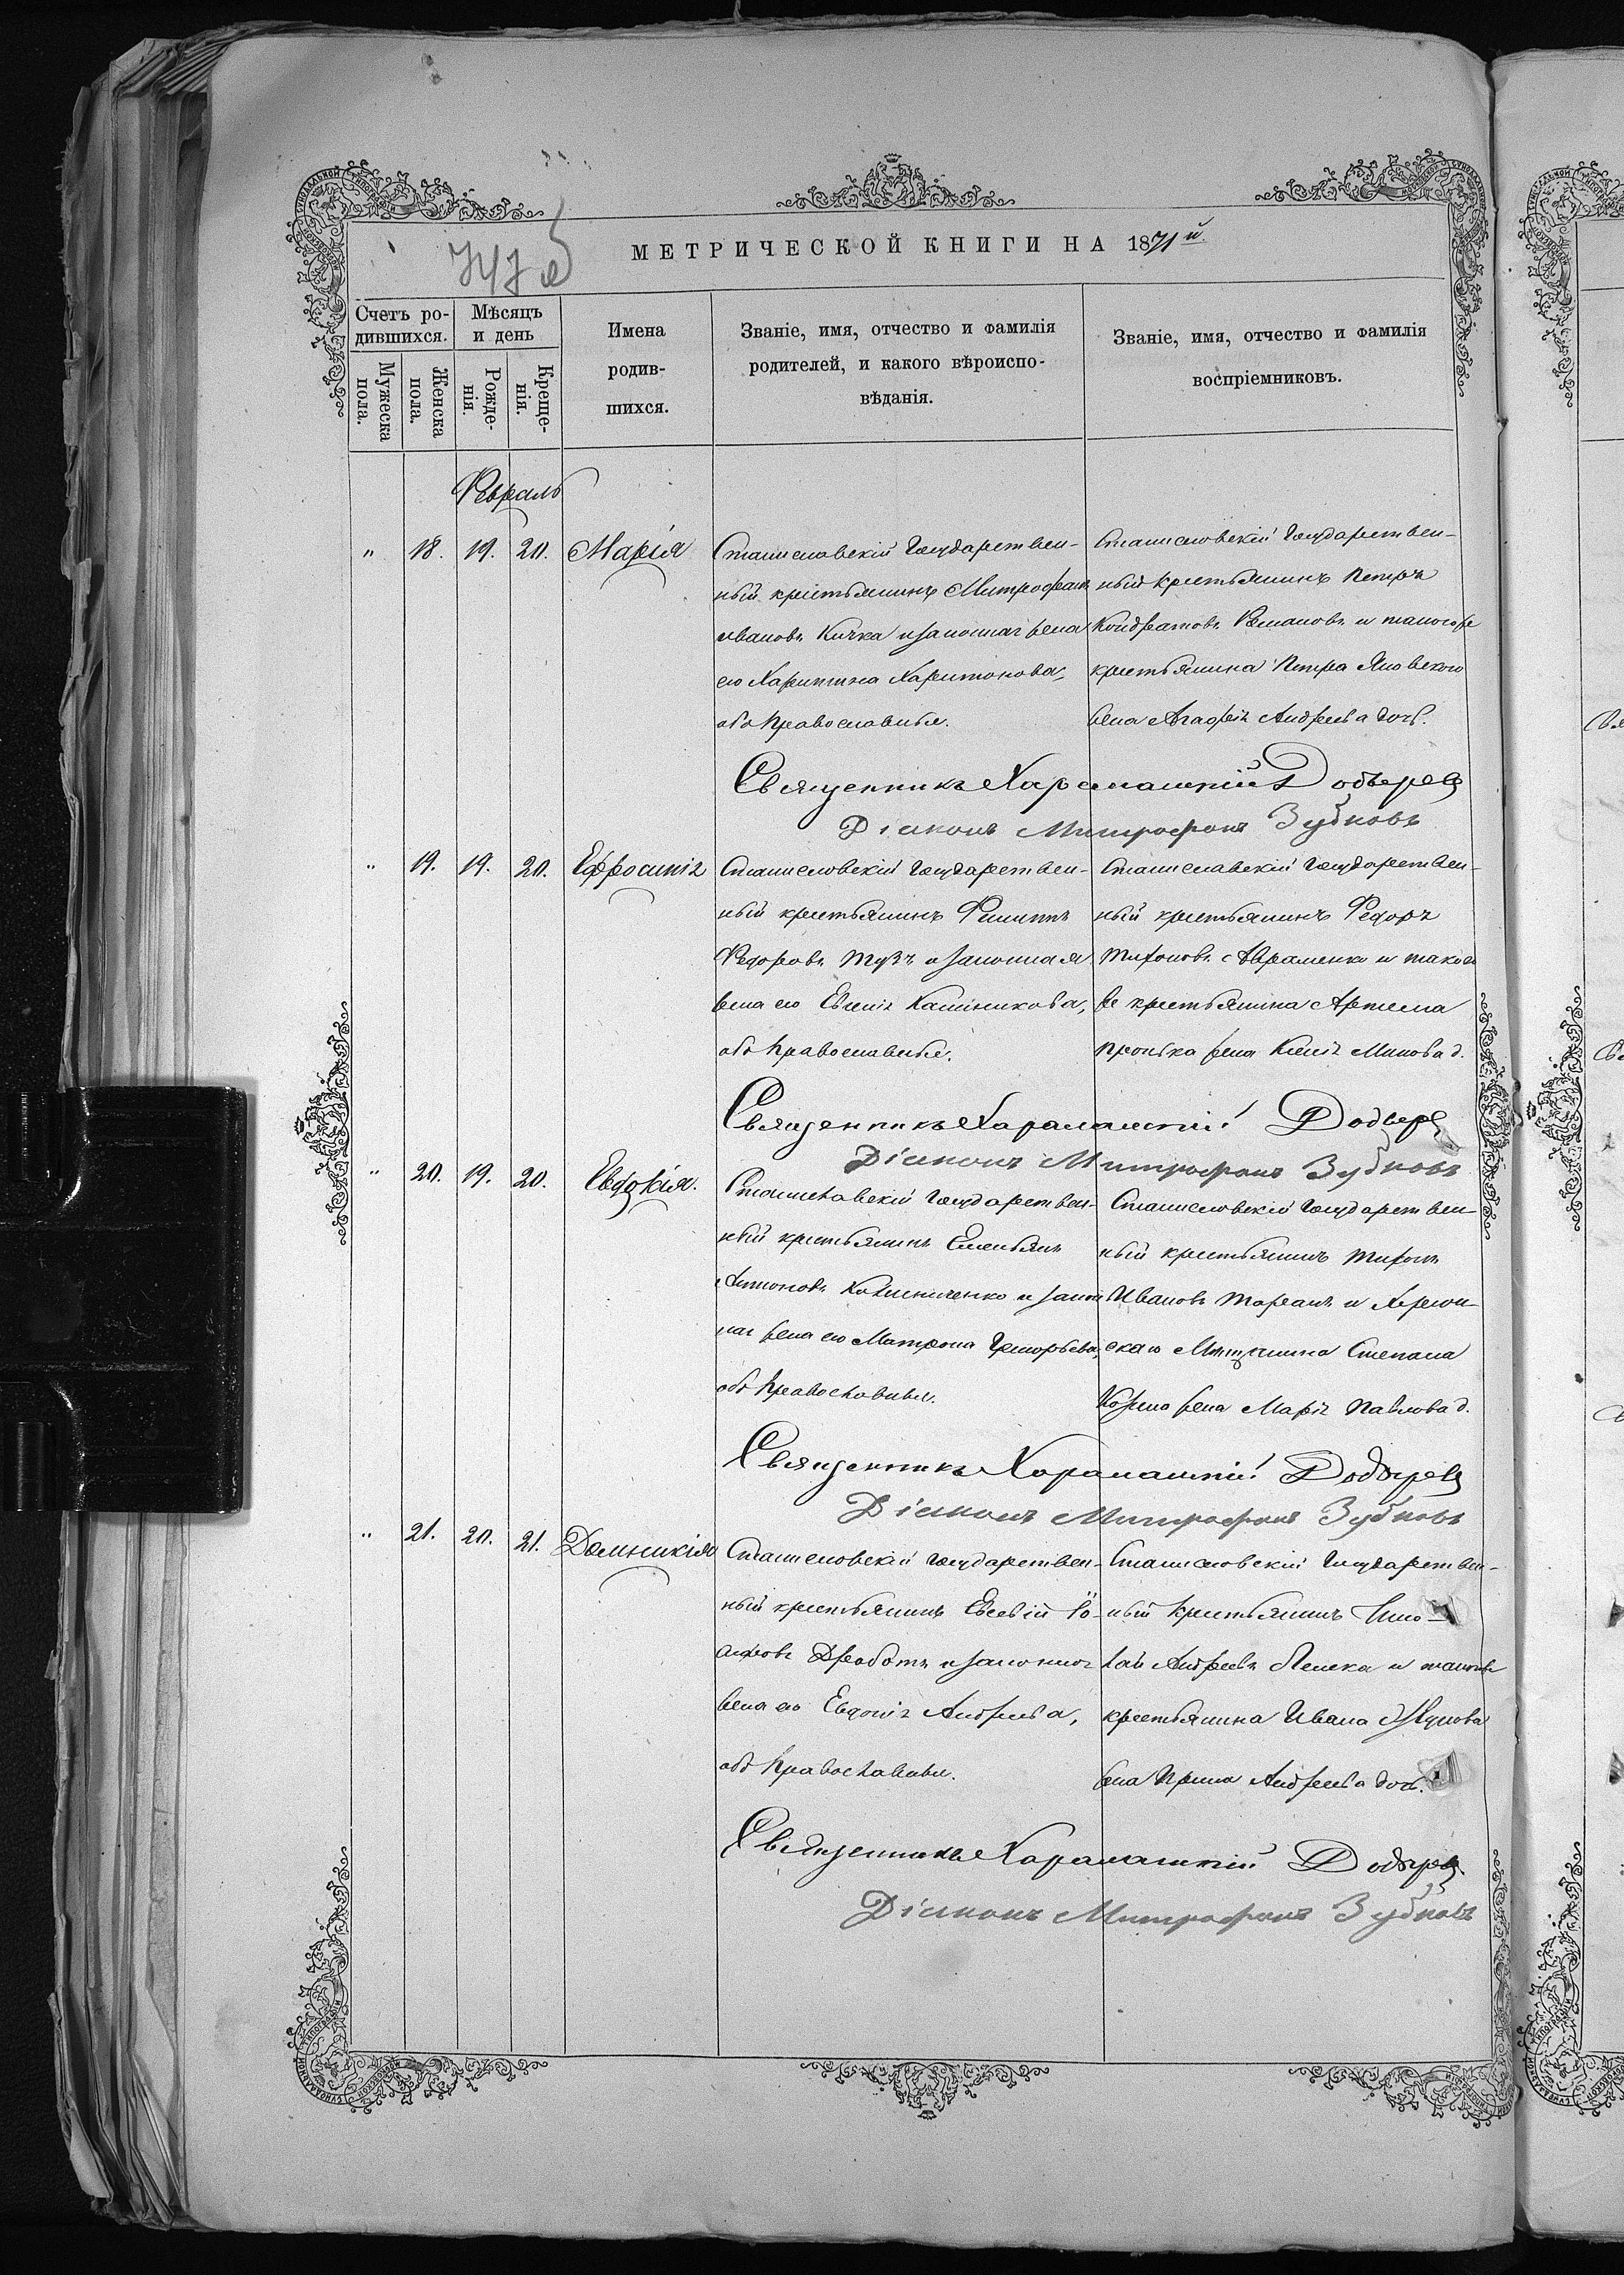 747 об
МЕТРИЧЕСКОЙ КНИГИ НА 1871й
Счетъ ро-
дившихся.
Мѣсяцъ
и день
Мужеска
пола.
Женска
пола.
Рожде-
нія.
Креще-
нія.
Имена
родив-
шихся.
Званіе, имя, отчество и фамилія
родителей, и какого вѣроиспо-
вѣданія.
Званіе, имя, отчество и фамилія
воспріемниковъ.
Февраль
" 18. 19. 20. Марія
Станиславскій Государствен-
ный крестьянинъ Митрофанъ
Ивановъ Кичка и законная жена
его Харитина Харитонова,
оба православные.
Станиславскій Государствен-
ный крестьянинъ Петръ
Кондратовъ Романовъ и таковагоже
крестьянина Петра Яновскаго
жена Агафія Андреева дочь.
Священникъ Харалампій Добырев
Діаконъ Митрофанъ Зубковъ
" 19. 19. 20. Ефросинія
Станиславскій Государствен-
ный крестьянинъ Филиппъ
Федоровъ Тузъ и законная
жена его Евгенія Калиникова,
оба православные.
Станиславскій Государствен-
ный крестьянинъ Федоръ
Тихоновъ Авраменко и таковаго
же крестьянина Артема
Пронька жена Ксенія Минова д.
Священникъ Харалампій Добырев
Діаконъ Митрофанъ Зубковъ
" 20. 19. 20. Евдокія.
Станиславскій Государствен-
ный крестьянинъ Емельянъ
Антоновъ Колисниченко и закон
ная жена его Матрона Григорьева,
оба православные.
Станиславскій Государствен-
ный крестьянинъ Тихонъ
Ивановъ Таранъ и Херсон-
скаго Мѣщанина Степана
жена Марія Павлова д.
Священникъ Харалампій Добырев
Діаконъ Митрофанъ Зубковъ
" 21. 20. 21. Домникія
Станиславскій Государствен-
ный крестьянинъ Евсевій Іо-
сифовъ Дроботъ и законная
жена его Евдокія Андреева,
оба православные.
Станиславскій Государствен-
ный крестьянинъ Нико-
лай Андреевъ и таковагоже
крестьянина Ивана
жена Ирина Андреева дочь.
Священникъ Харалампій Добырев
Діаконъ Митрофанъ Зубковъ